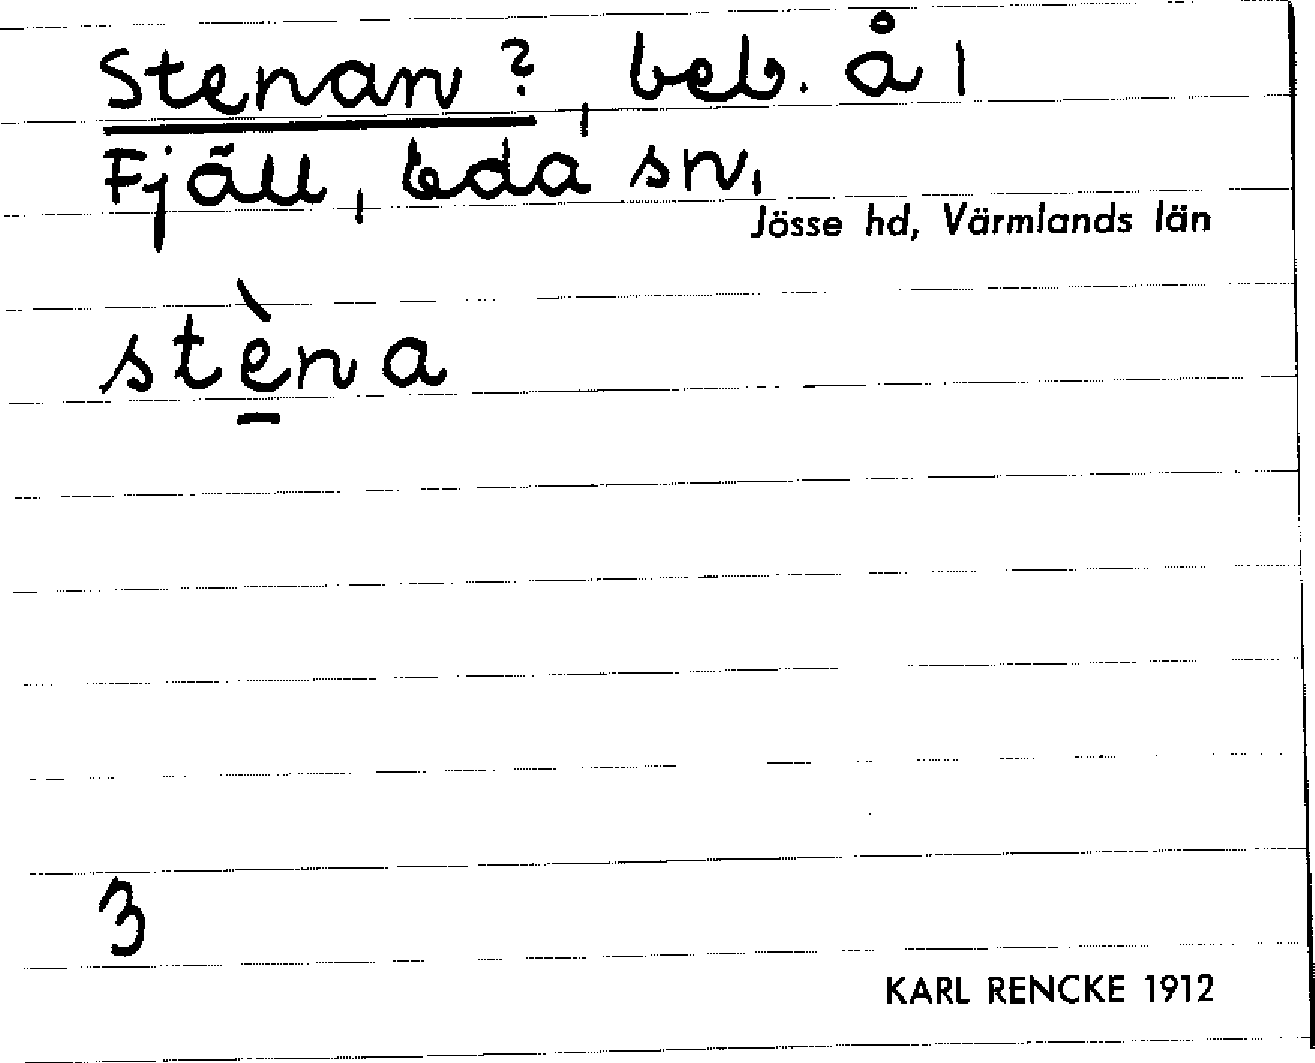 Stenan?, beb. å 1
Fjäll, Eda sn,
Jösse hd, Värmlands län
stèna
3
KARL RENCKE 1912